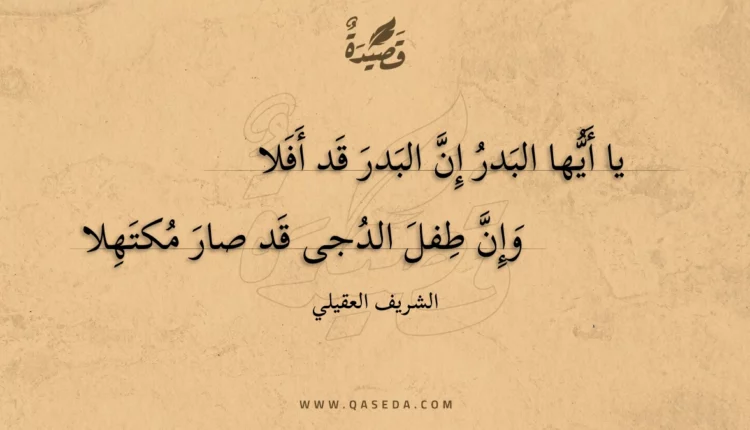 قَصِيدَةٌ
يا أَيُّها البَدرُ إِنَّ البَدرَ قَد أَفَلا
وَإِنَّ طِفلَ الدُجى قَد صارَ مُكتَهِلا
الشريف العقيلي
WWW.QASEDA.COM